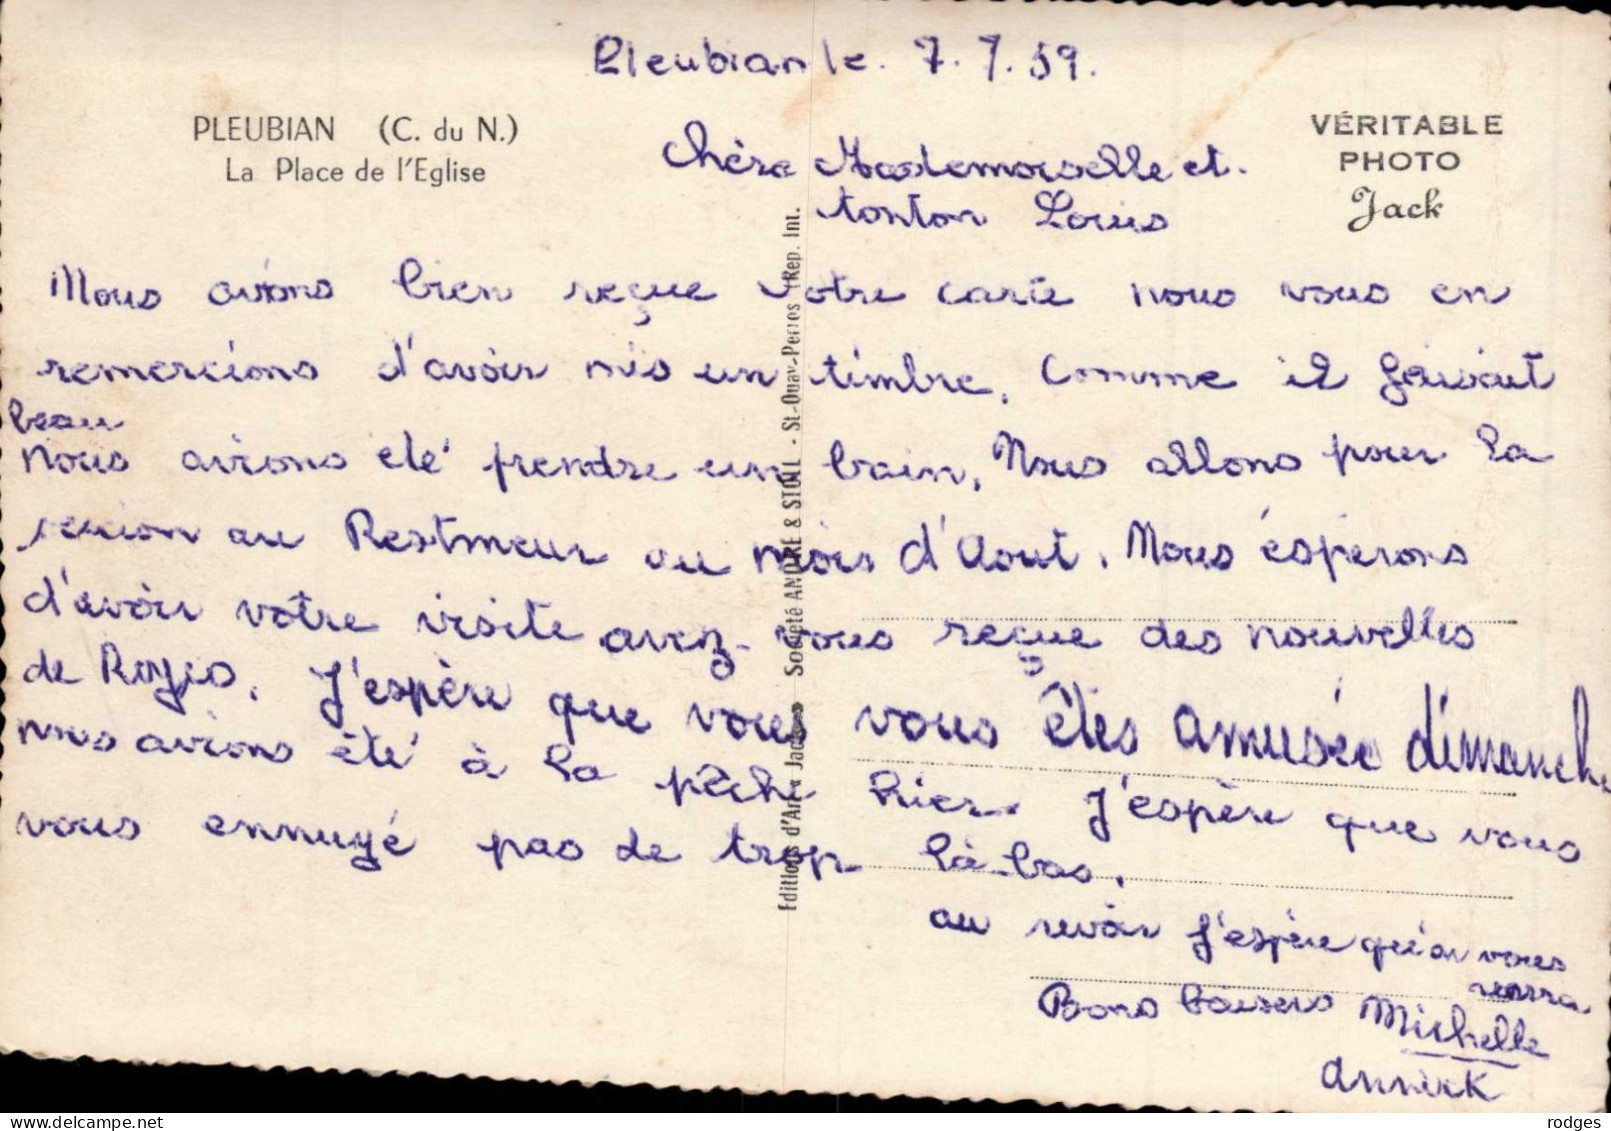 Pleubian le. 7.7.59.
PLEUBIAN (C. du N.)
La Place de l'Eglise
VÉRITABLE
PHOTO
Jack
Chère Mademoiselle et.
tonton Louis
Nous avions bien reçue votre carte nous vous en
remercions d'avoir mis un timbre. Comme il faisait
beau
nous avions été prendre un bain. Nous allons pour la
au Restmeur au mois d'Aout. Nous éspérons
d'avoir votre visite avez-vous reçue des nouvelles
de J'espère que vous vous êtes amusée dimanche
nous avions été à la pêche hier. J'espère que vous
vous ennuyé pas de trop là-bas.
au revoir J'espère qu'on vous
verra
Bons baisers Michelle
Annick
Editions d'Art Jack Société ANDRÉ & STOLL - St-Quay-Perros (Rep. Int.
rodges